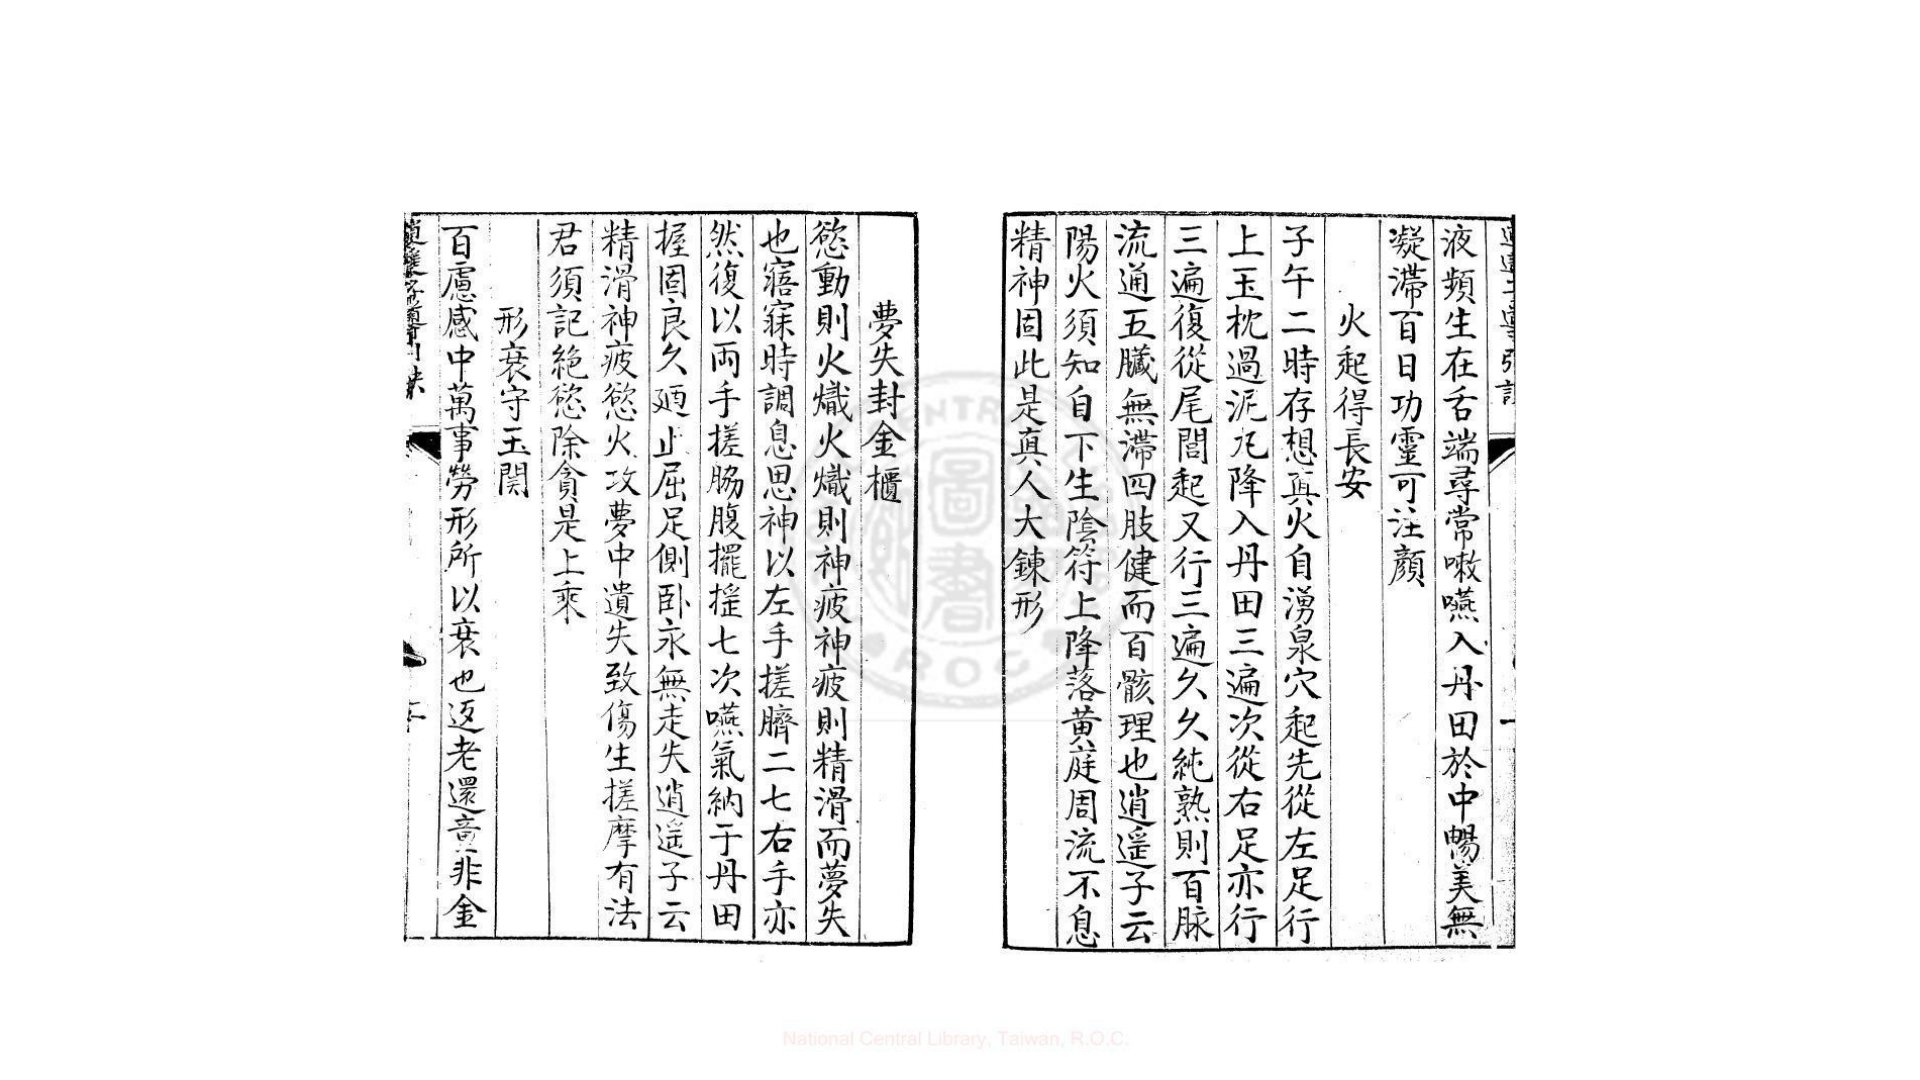 液頻生在舌端尋常嗽嚥入丹田於中暢美無
凝滯百日功靈可注顏
火起得長安
子午二時存想真火自湧泉穴起先從左足行
上玉枕過泥丸降入丹田三遍次從右足亦行
三遍復從尾閭起又行三遍久久純熟則百脉
流通五臟無滯四肢健而百骸理也逍遥子云
陽火須知自下生陰符上降落黃庭周流不息
精神固此是真人大鍊形
夢失封金櫃
慾動則火熾火熾則神疲神疲則精滑而夢失
也寤寐時調息思神以左手搓臍二七右手亦
然復以兩手搓脇腹擺揺七次嚥氣納于丹田
握固良久廼止屈足側卧永無走失逍遥子云
精滑神疲慾火攻夢中遺失致傷生搓摩有法
君須記絶慾除貪是上乘
形衰守玉関
百慮感中萬事勞形所以衰也返老還童非金
逍遥子導引訣
National Central Library, Taiwan, R.O.C.